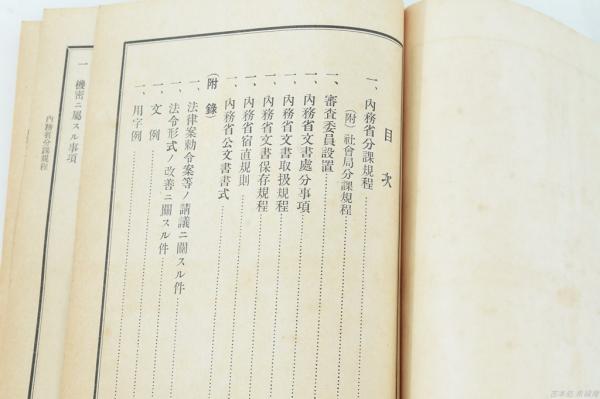 目次
一、內務省分課規程
(附)社會局分課規程
一、審査委員設置
一、內務省文書處分事項
一、內務省文書取扱規程
一、內務省文書保存規程
一、內務省宿直規則
一、內務省公文書書式
(附錄)
一、法律案勅令案等ノ請議ニ關スル件
一、法令形式ノ改善ニ關スル件
一、文例
一、用字例
一 機密ニ屬スル事項
內務省分課規程